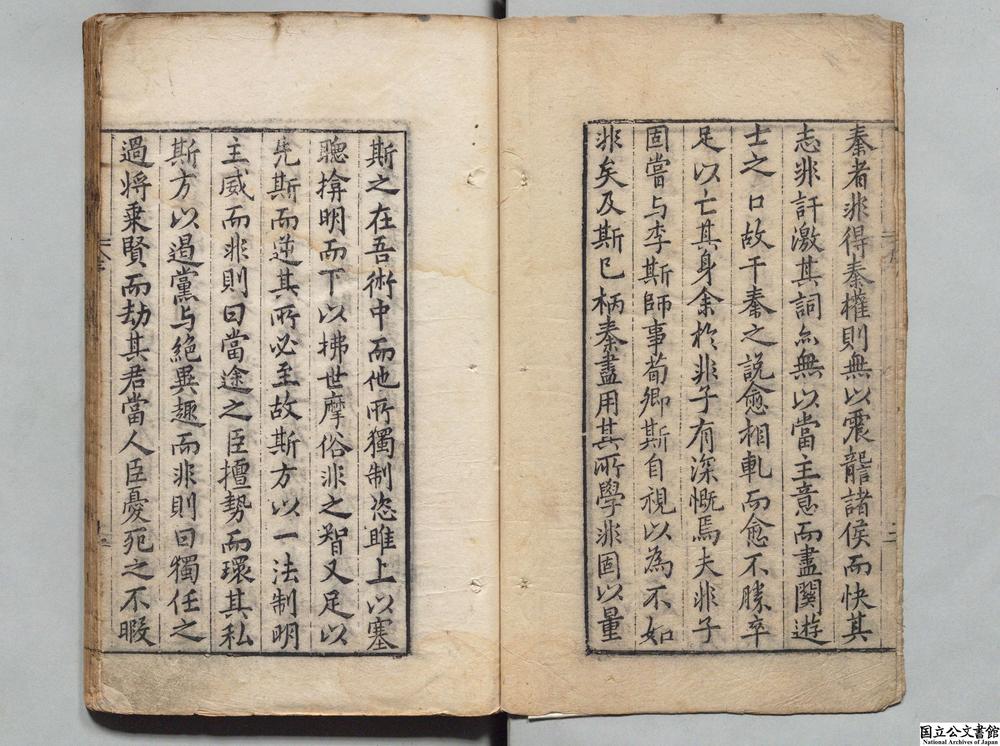 秦者非得秦權則無以震讋諸侯而快其
志非訐激其詞亦無以當主意而盡闋遊
士之口故干秦之說愈相軋而愈不勝卒
足以亡其身余於非子有深慨焉夫非子
固嘗与李斯師事荀卿斯自視以為不如
非矣及斯已柄秦盡用其所學非固以量
斯之在吾術中而他所獨制恣雎上以塞
聰揜明而下以拂世摩俗非之智又足以
先斯而逆其所必至故斯方以一法制明
主威而非則曰當途之臣擅勢而環其私
斯方以遏黨与絕異趣而非則曰獨任之
過將乗賢而劫其君當人臣憂死之不暇
国立公文書館
National Archives of Japan